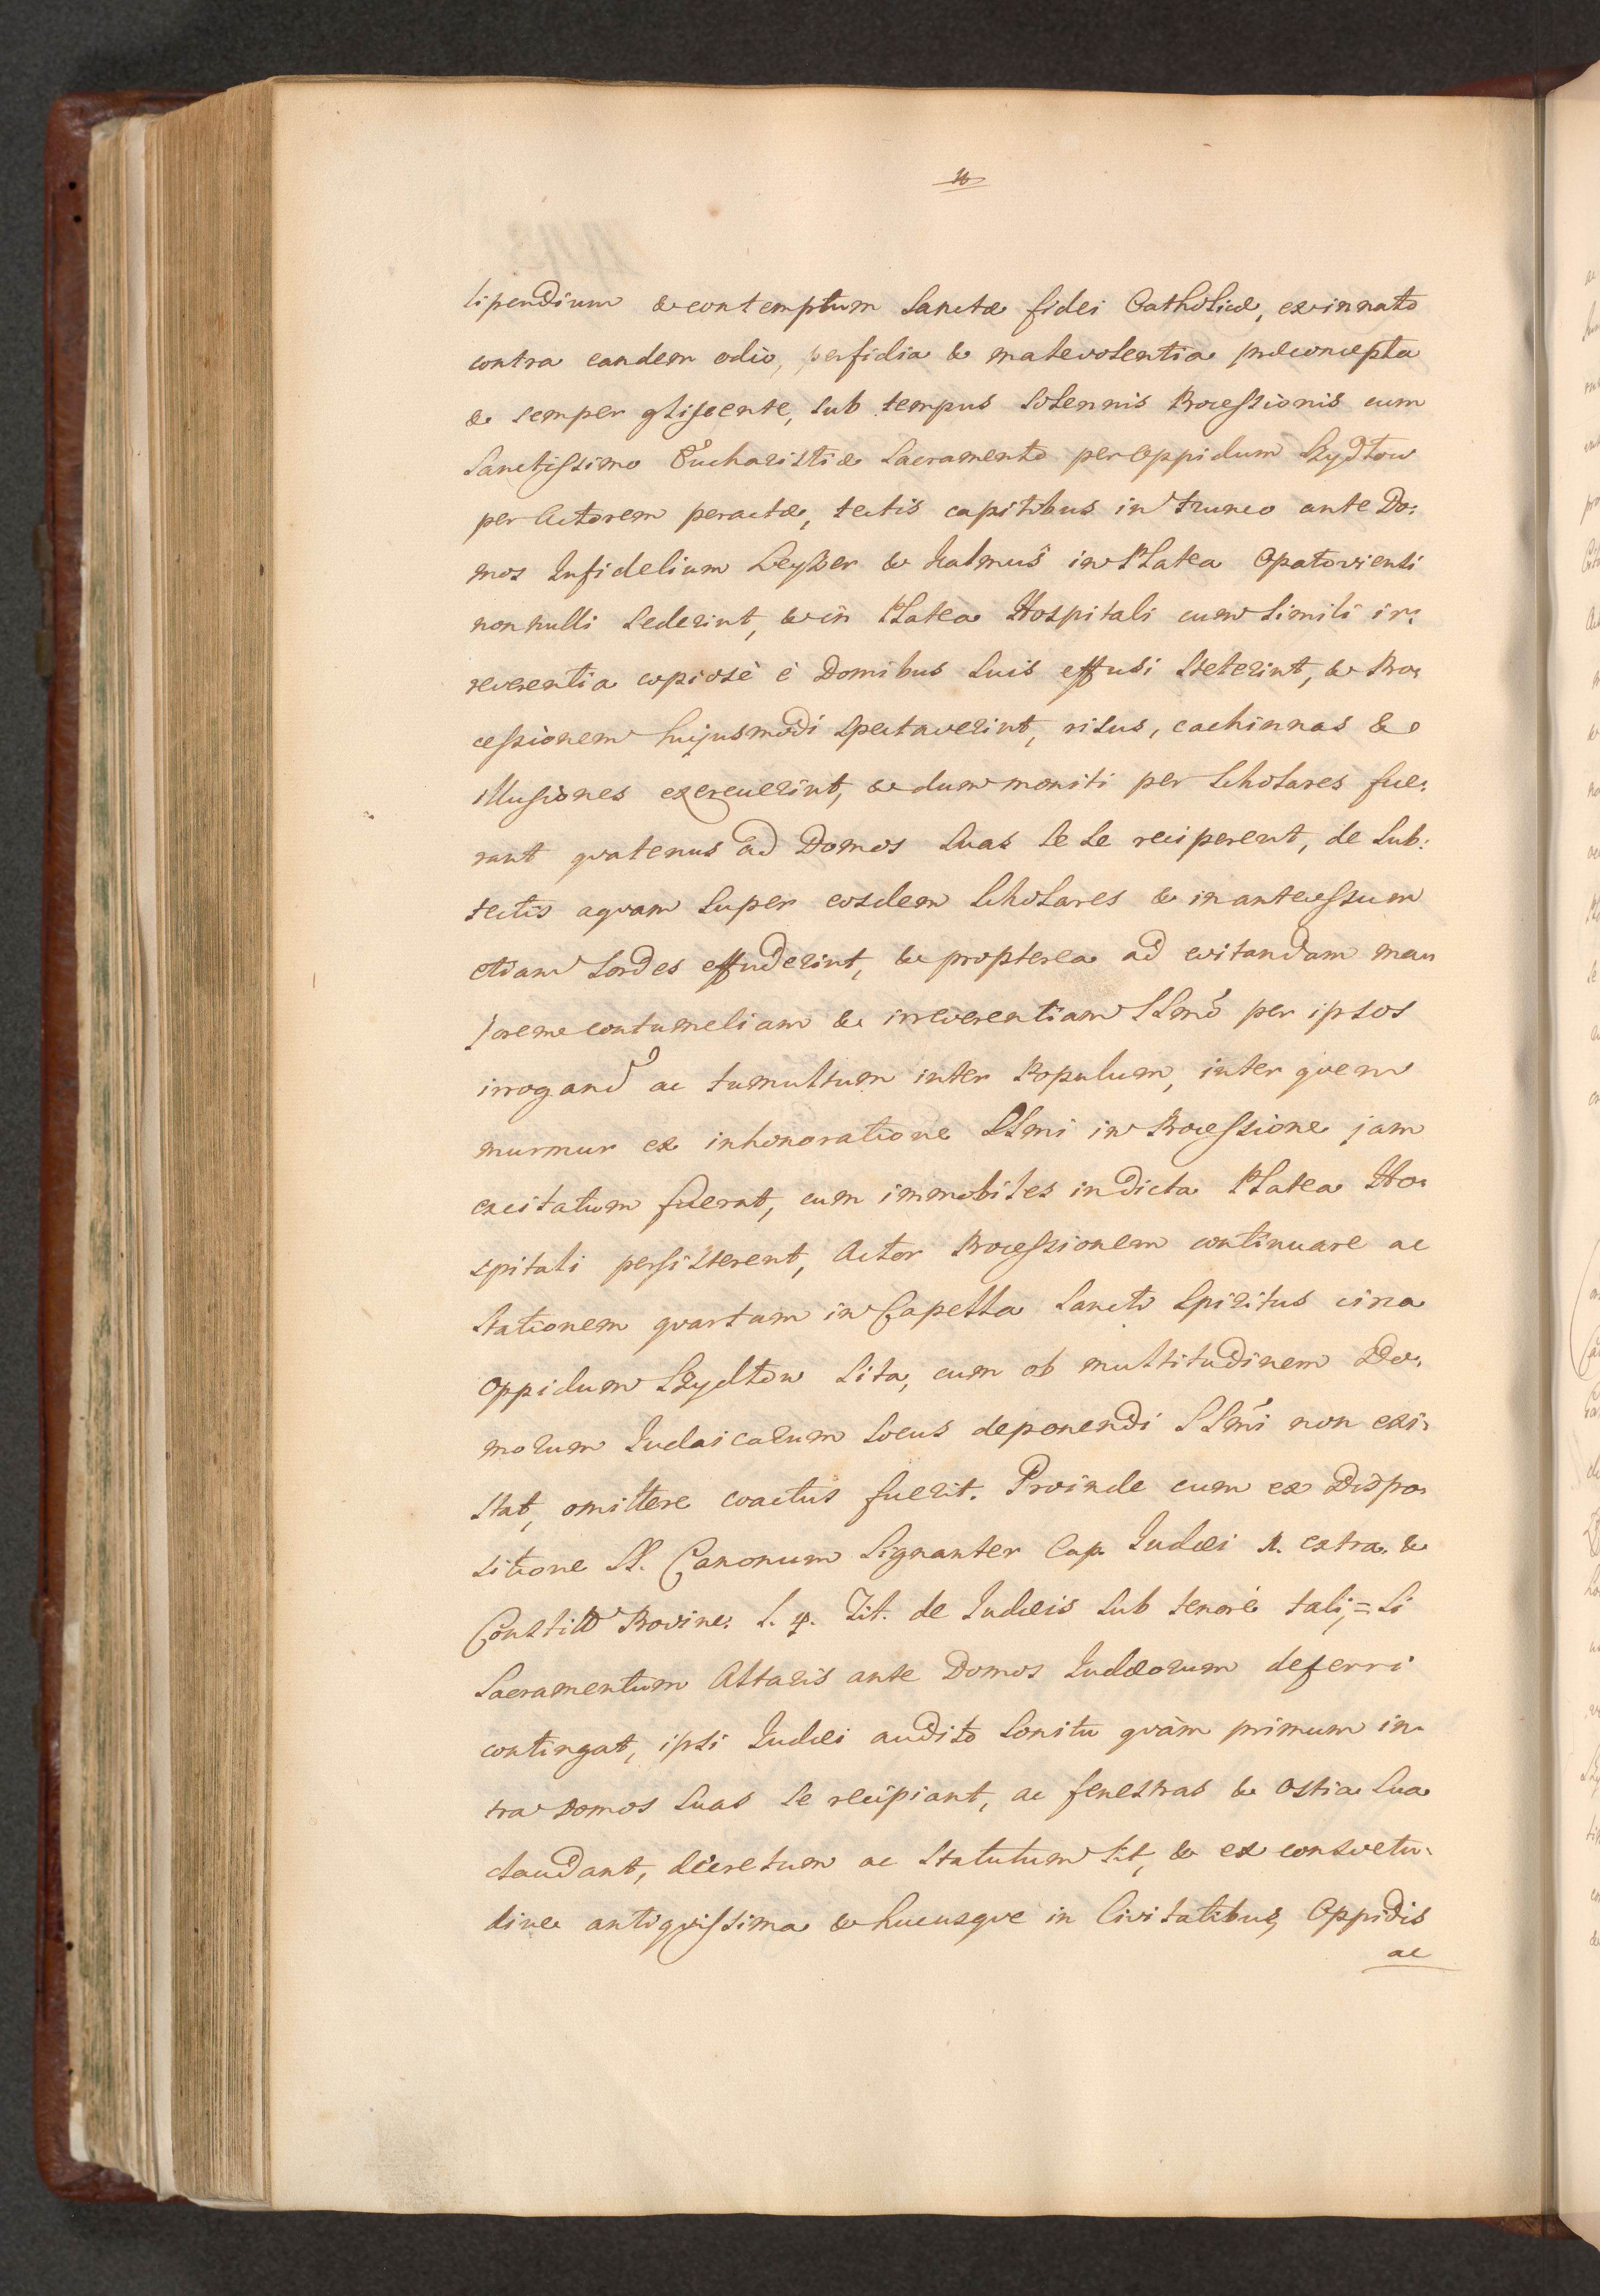 lipendium & contemptum Sanctæ fidei Catholicæ, ex innato
contra eandem odio, perfidia & malevolentia præconcepta
& semper gliscente, sub tempus Solennis Processionis cum
Sanctissimo Eucharistiæ Sacramento per Oppidum Szydłow
per Actorem peractæ, tectis capitibus in trunco ante Do:
mos Infidelium Leyzer & Kalmus in Platea Opatoviensi
nonnulli Sederint, & in Platea Hospitali cum Simili ir:
reverentia copiosè è Domibus Suis effusi Steterint, & Pro:
cessionem hujusmodi Spectaverint, risus, cachinnas &
illusiones exercuerint, & dum moniti per Scholares fue:
rant qvatenus ad Domos Suas Se Se reciperent, de Sub:
tectis aqvam Super eosdem Scholares & in antecessum
etiam Sordes effuderint, & propterea ad evitandam ma
jorem contumeliam & irreverentiam SSmo per ipsos
irrogand ac tumultum inter Populum, inter qvem
murmur ex inhonoratione SSmi in Processione jam
excitatum fuerat, cum immobiles in dicta Platea Ho:
spitali persisterent, Actor Processionem continuare ac
Stationem qvartam in Capella Sancti Spiritus circa
Oppidum Szydłow Sita, cum ob multitudinem Do:
morum Judaicarum Locus deponendi SSmi non exi:
stat, omittere coactus fuerit. Proinde cum ex Dispo:
sitione SS. Canonum Signanter Cap. Judæi extra. &
Constit Provinc: L. 4. Tit. de Judæis Sub tenore tali, = Si
Sacramentum Altaris ante Domos Judæorum deferri
contingat, ipsi Judæi audito Sonitu qvàm primum in:
tra Domos Suas Se recipiant, ac fenestras & Ostia Sua
claudant, decretum ac Statutum Sit, & ex consvetu:
dine antiqvissima & hucusqve in Civitatibus, Oppidis
ac